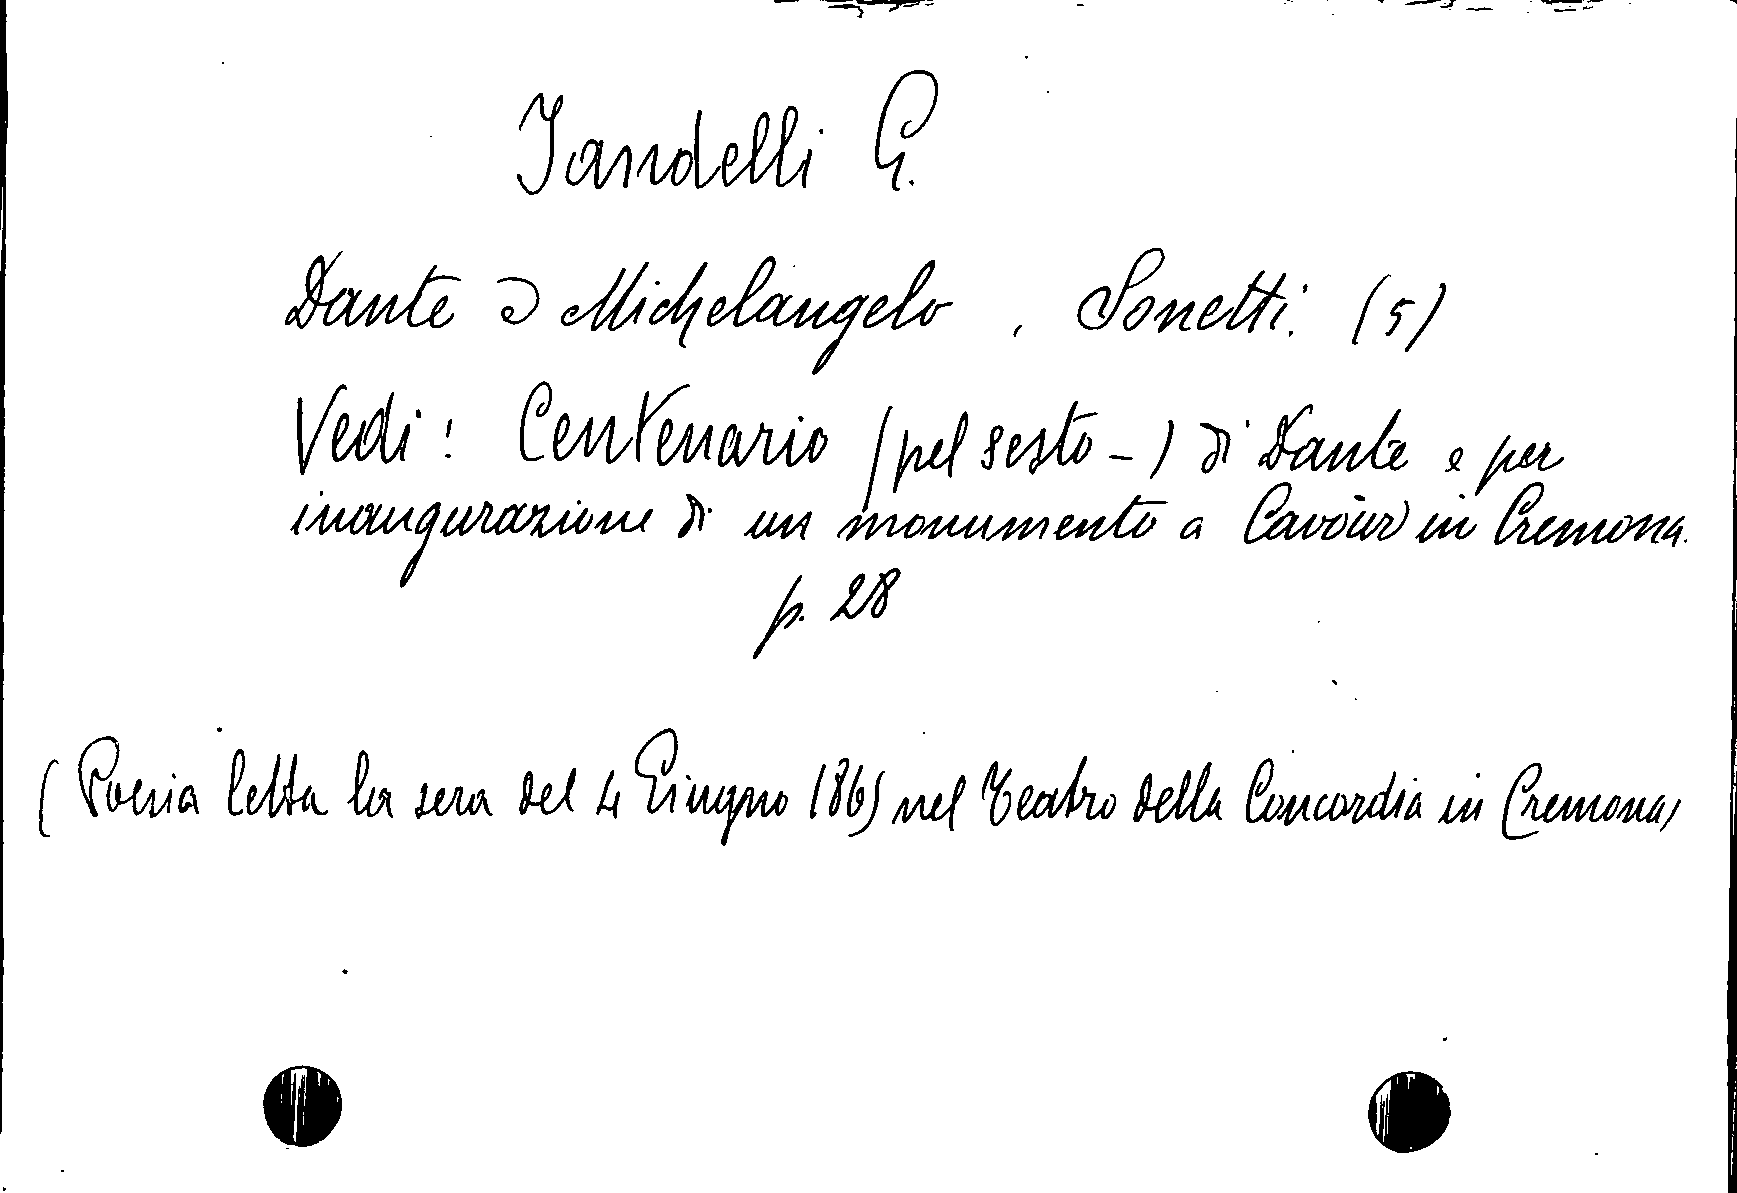 Jandelli G.
Dante e Michelangelo. Sonetti. (5)
Vedi: Centenario (pel sesto -) di Dante e per
inaugurazione di un monumento a Cavour in Cremona.
p. 28
(Poesia letta la sera del 4 Giugno 1865 nel Teatro della Concordia in Cremona)